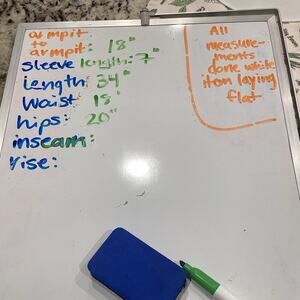 armpit
to
armpit: 18"
sleeve length: 7"
Length: 34"
Waist 18"
hips: 20"
inseam:
rise:
All
measure-
ments
done while
item laying
flat